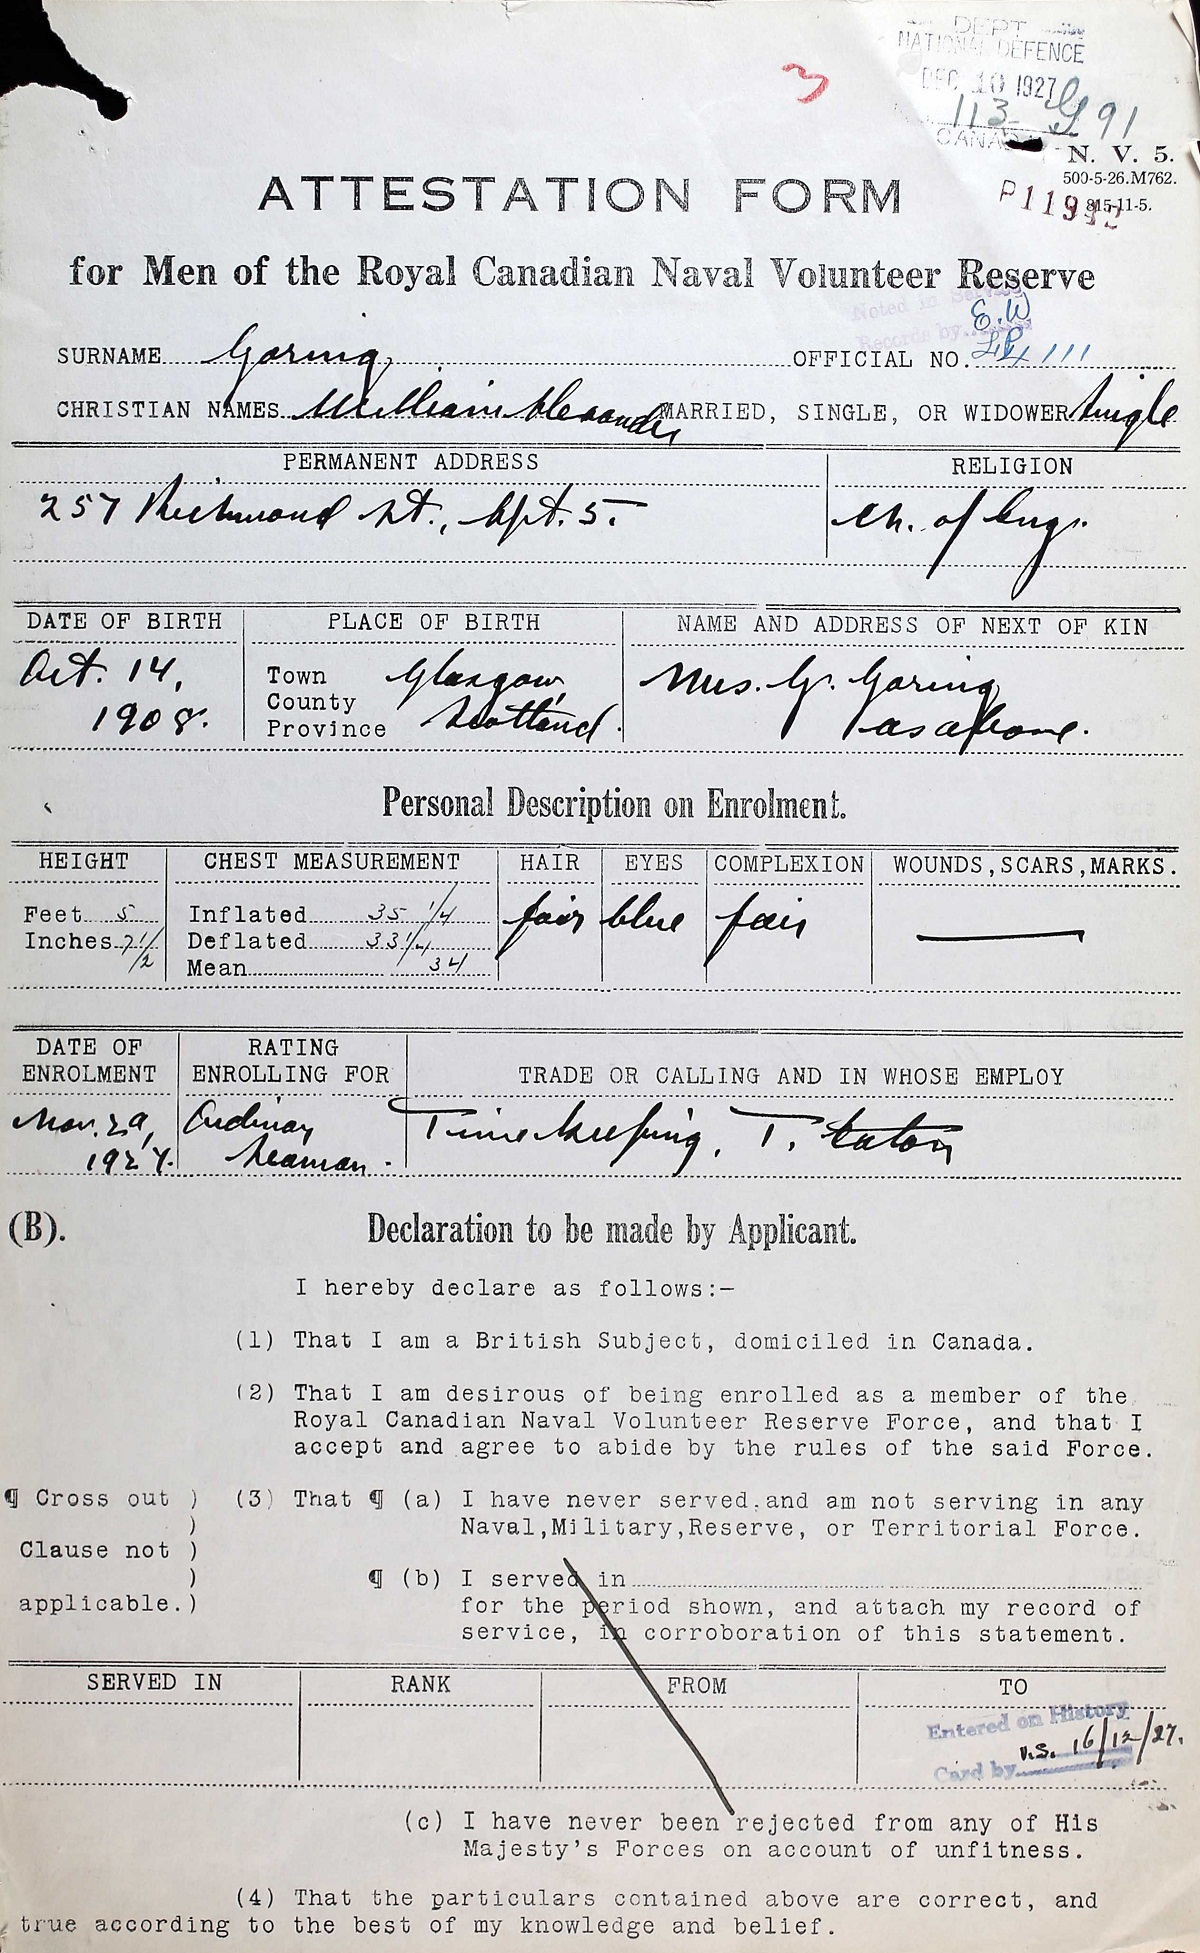 DEPT
NATIONAL DEFENCE
DEC 10 1927
113- G 91
CANADA
3
N. V. 5.
500-5-26.M762.
815-11-5.
P11992
ATTESTATION FORM
for Men of the Royal Canadian Naval Volunteer Reserve
Noted in Service
Records by
E.W
SURNAME Goring, OFFICIAL NO. 111
CHRISTIAN NAMES William Alexander MARRIED, SINGLE, OR WIDOWER Single
PERMANENT ADDRESS RELIGION
257 Richmond St., Apt. 5. Ch. of Eng.
DATE OF BIRTH PLACE OF BIRTH NAME AND ADDRESS OF NEXT OF KIN
Oct. 14, Town Glasgow, Mrs. G. Goring
County
1908. Province Scotland. as above.
Personal Description on Enrolment.
HEIGHT CHEST MEASUREMENT HAIR EYES COMPLEXION WOUNDS,SCARS,MARKS.
Feet 5 Inflated 35 1/4 fair blue fair
Inches 7 1/2 Deflated 33 1/4
Mean 34
DATE OF RATING
ENROLMENT ENROLLING FOR TRADE OR CALLING AND IN WHOSE EMPLOY
Nov. 29, Ordinary Timekeeping, T. Eaton
1927. Seaman.
(B). Declaration to be made by Applicant.
I hereby declare as follows:-
(1) That I am a British Subject, domiciled in Canada.
(2) That I am desirous of being enrolled as a member of the
Royal Canadian Naval Volunteer Reserve Force, and that I
accept and agree to abide by the rules of the said Force.
¶ Cross out ) (3) That ¶ (a) I have never served and am not serving in any
) Naval,Military,Reserve, or Territorial Force.
Clause not )
) ¶ (b) I served in
applicable.) for the period shown, and attach my record of
service, in corroboration of this statement.
SERVED IN RANK FROM TO
Entered on History
Card by V.S. 16/12/27.
(c) I have never been rejected from any of His
Majesty's Forces on account of unfitness.
(4) That the particulars contained above are correct, and
true according to the best of my knowledge and belief.